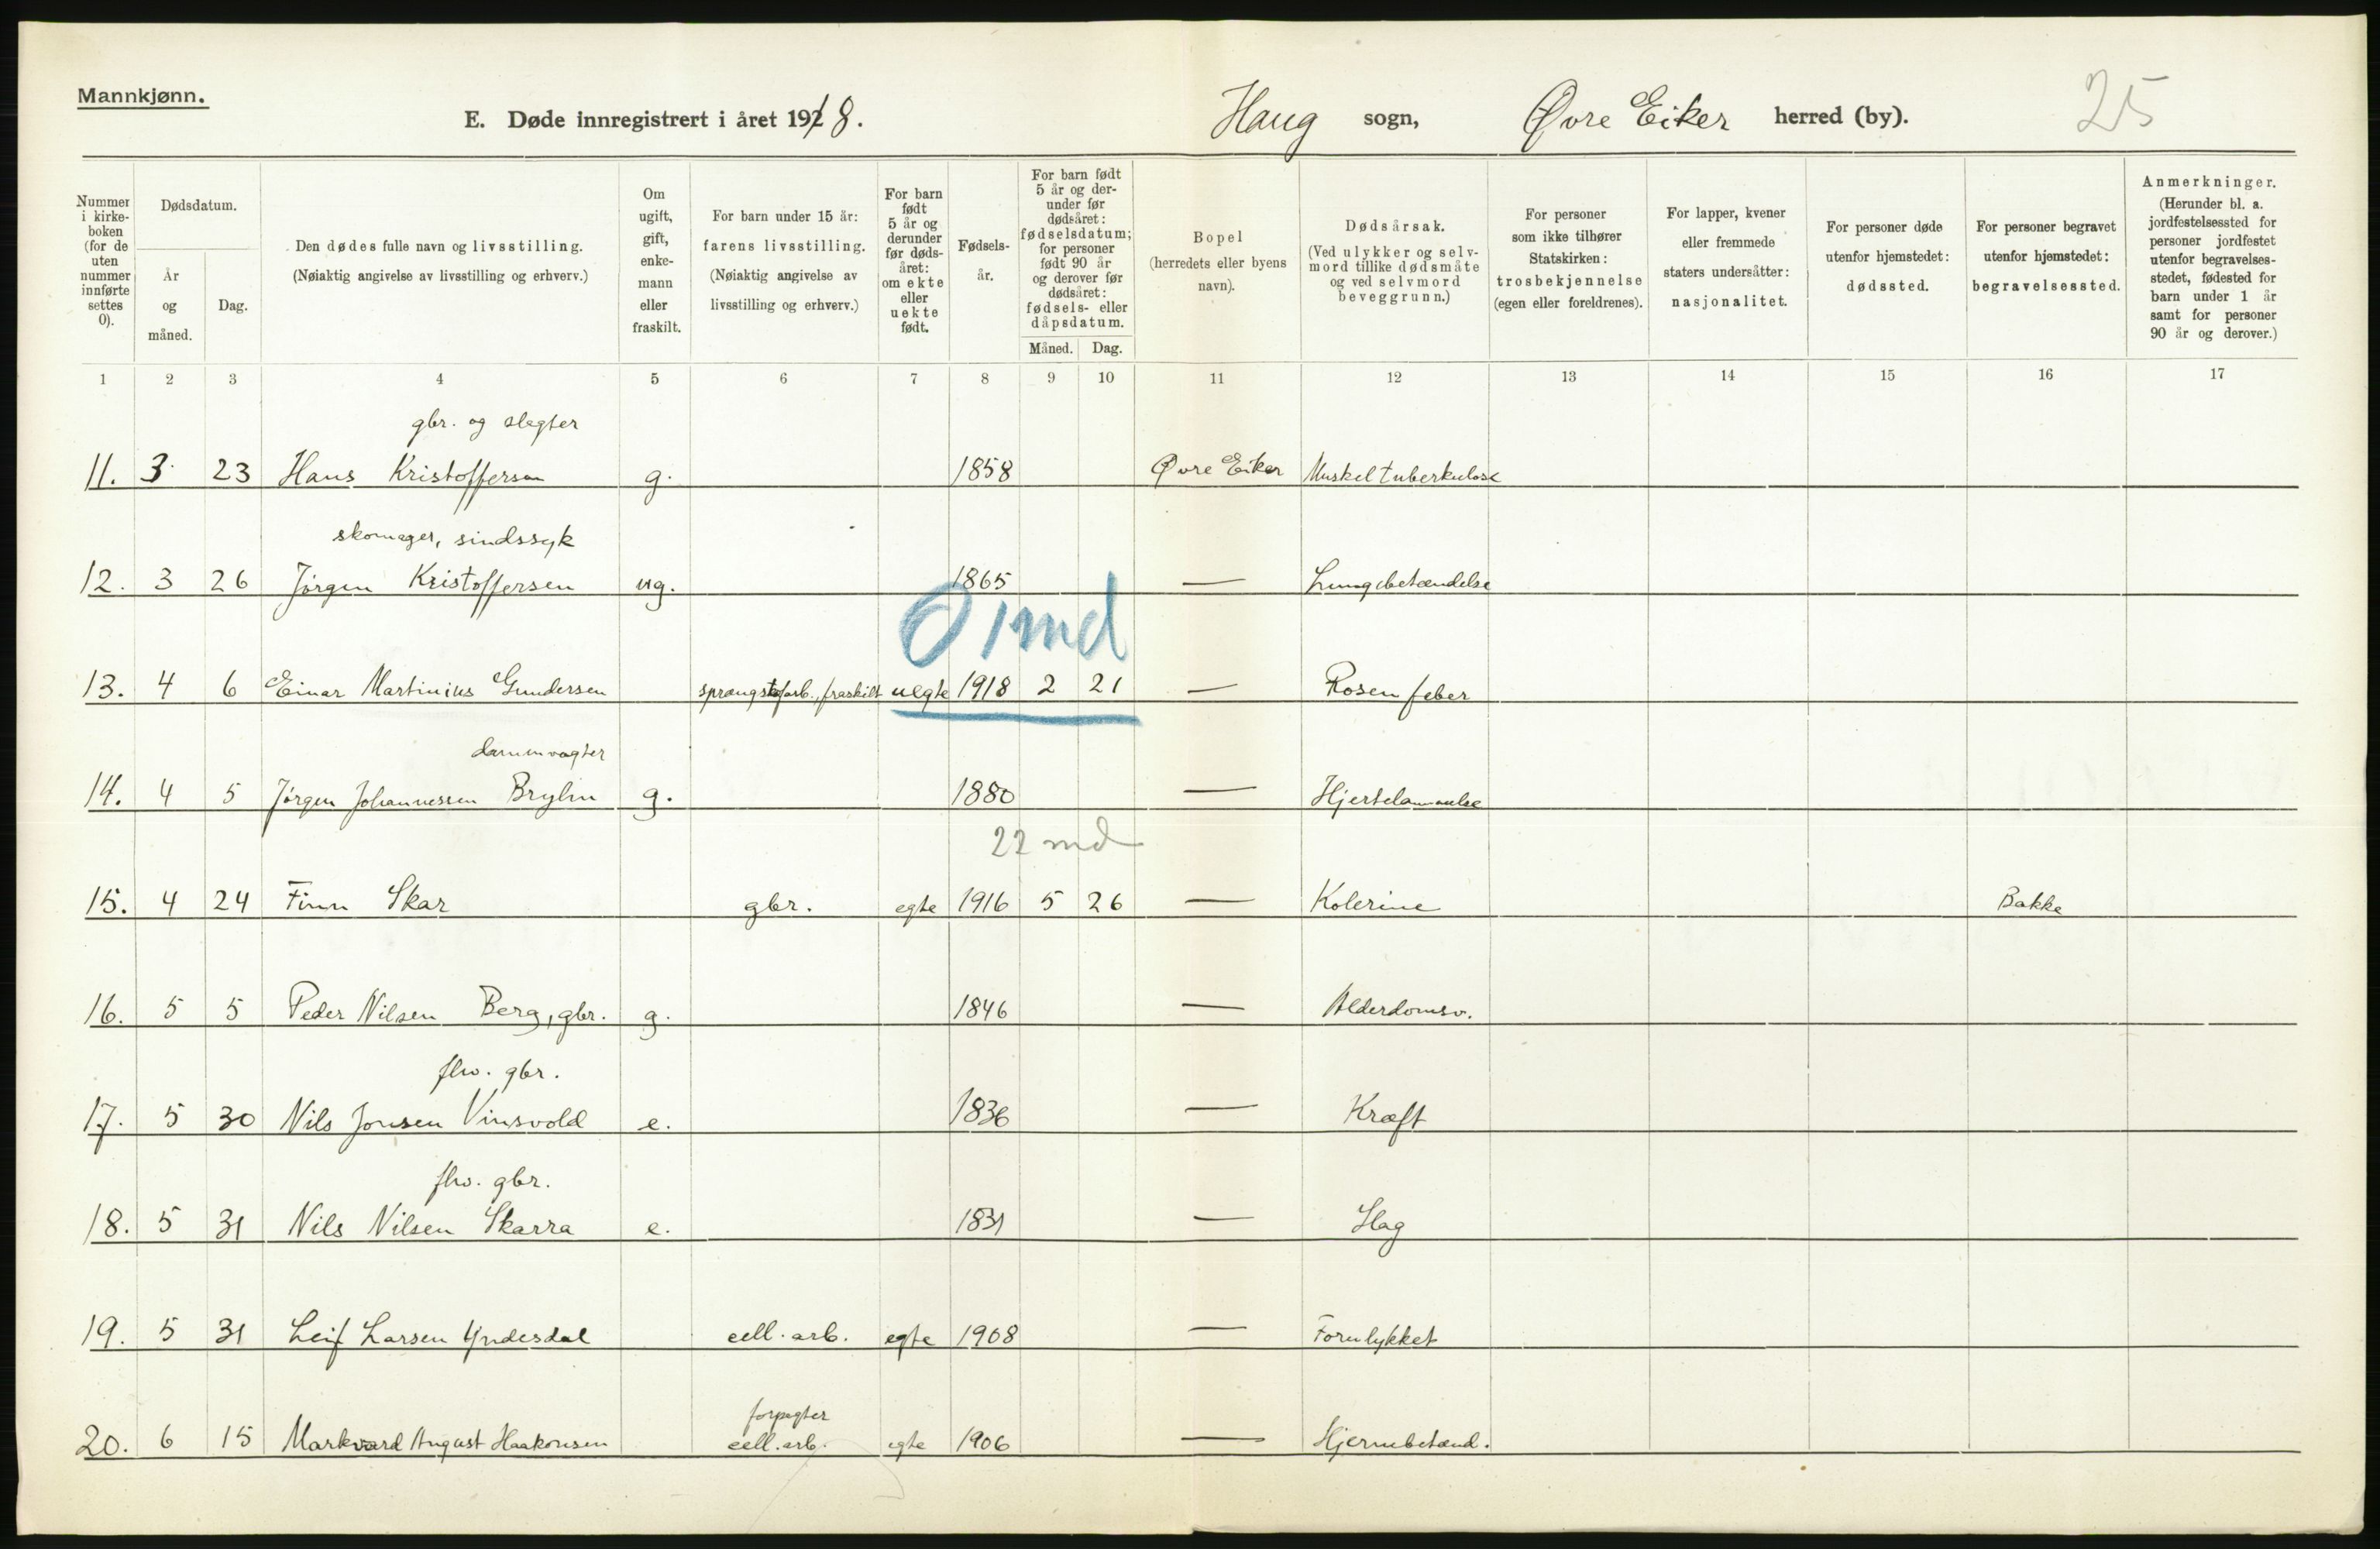 Mannkjønn.
E. Døde innregistrert i året 1918. Haug sogn, Øvre Eiker herred (by). 25
Nummer i kirkeboken (for de uten nummer innførte settes 0).
Dødsdatum.
År og måned.
Dag.
Den dødes fulle navn og livsstilling.
(Nøiaktig angivelse av livsstilling og erhverv.)
Om ugift, gift, enkemann eller fraskilt.
For barn under 15 år:
farens livsstilling.
(Nøiaktig angivelse av livsstilling og erhverv.)
For barn født 5 år og derunder før dødsåret: om ekte eller uekte født.
Fødselsår.
For barn født 5 år og derunder før dødsåret: fødselsdatum; for personer født 90 år og derover før dødsåret: fødsels- eller dåpsdatum.
Måned. Dag.
Bopel
(herredets eller byens navn).
Dødsårsak.
(Ved ulykker og selvmord tillike dødsmåte og ved selvmord beveggrunn.)
For personer som ikke tilhører Statskirken: trosbekjennelse (egen eller foreldrenes).
For lapper, kvener eller fremmede staters undersåtter: nasjonalitet.
For personer døde utenfor hjemstedet: dødssted.
For personer begravet utenfor hjemstedet: begravelsessted.
Anmerkninger.
(Herunder bl. a. jordfestelsessted for personer jordfestet utenfor begravelsesstedet, fødested for barn under 1 år samt for personer 90 år og derover.)
1 2 3 4 5 6 7 8 9 10 11 12 13 14 15 16 17
gbr. og slagter
11. 3 23 Hans Kristoffersen g. 1858 Øvre Eiker Muskeltuberkulose
skomager, sindssyk
12. 3 26 Jørgen Kristoffersen ug. 1865 — Lungebetændelse
0 1 md
13. 4 6 Einar Martinius Gundersen sprængstofarb., fraskilt uegte 1918 2 21 — Rosenfeber
damvogter
14. 4 5 Jørgen Johannessen Brylin g. 1880 — Hjertelammelse
22 md
15. 4 24 Finn Skar gbr. egte 1916 5 26 — Kolerine Bakke
16. 5 5 Peder Nilsen Berg, gbr. g. 1846 — Alderdomsv.
fhv. gbr.
17. 5 30 Nils Jonsen Vinsvold e. 1836 — Kræft
fhv. gbr.
18. 5 31 Nils Nilsen Skarra e. 1831 — Slag
19. 5 31 Leif Larsen Yndesdal cell. arb. egte 1908 — Forulykket
forpagter
20. 6 15 Markvard August Haakonsen cell. arb. egte 1906 — Hjernebetænd.